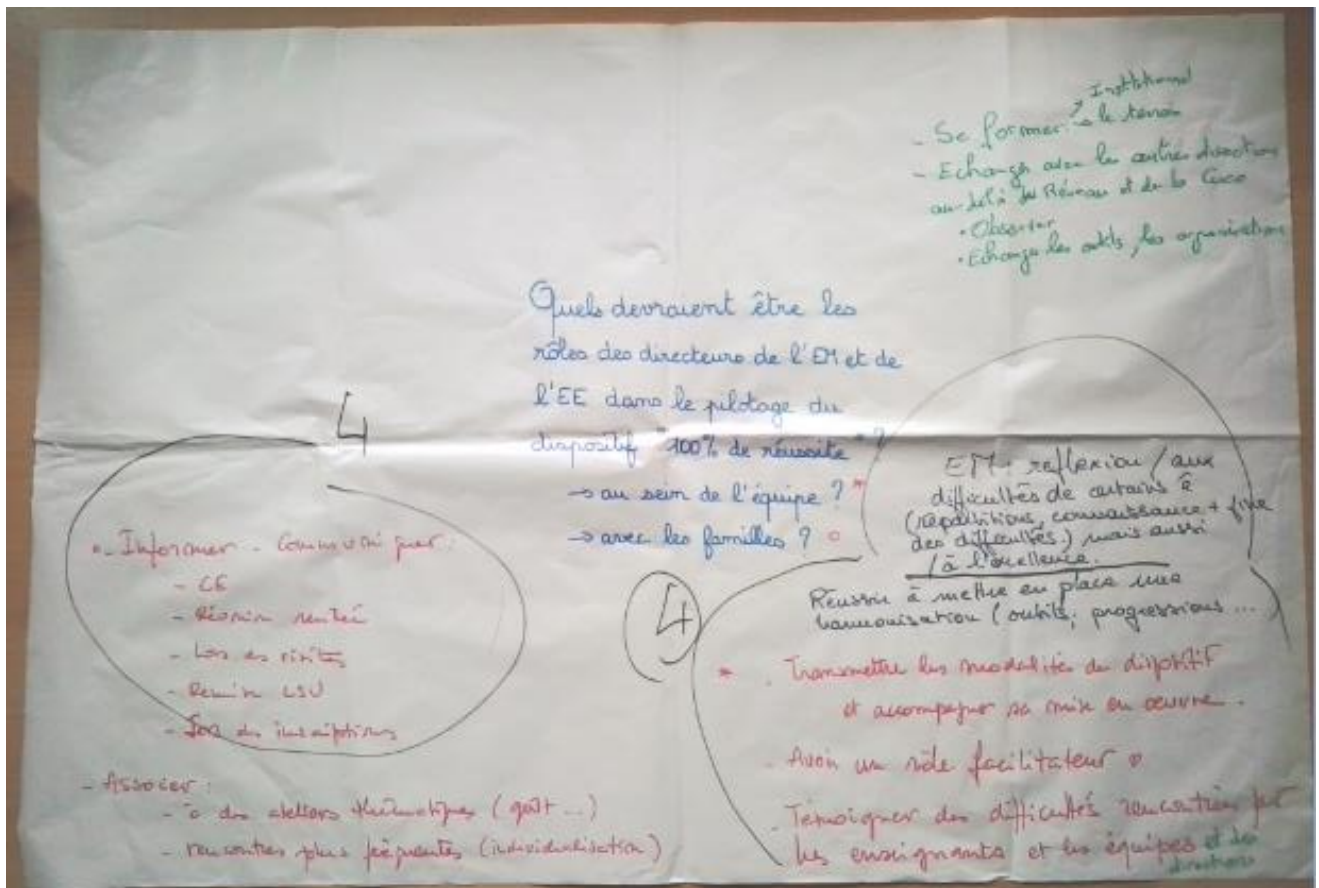 Institutionnel
- Se former → le terrain
- Echanger avec les autres directions
au-delà du Réseau et de la Circo
• Observer
• Echanger les outils, les organisations
Quels devraient être les
rôles des directeurs de l'EM et de
l'EE dans le pilotage du
dispositif "100% de réussite" ?
→ au sein de l'équipe ? *
→ avec les familles ? o
4
- Informer - Communiquer :
- CE
- Réunion rentrée
- Lors des visites
- Remise LSU
- Lors des inscriptions
- Associer :
- à des ateliers thématiques (goût ...)
- rencontres plus fréquentes (individualisation)
4
EM : reflexion / aux
difficultés de certains
(répartitions, connaissance + fine
des difficultés) mais aussi
/ à l'excellence.
Réussir à mettre en place une
harmonisation (outils, progressions ...
* - Transmettre les modalités du dispositif
et accompagner sa mise en oeuvre.
- Avoir un rôle facilitateur
- Témoigner des difficultés rencontrées par
les enseignants et les équipes et des
directions